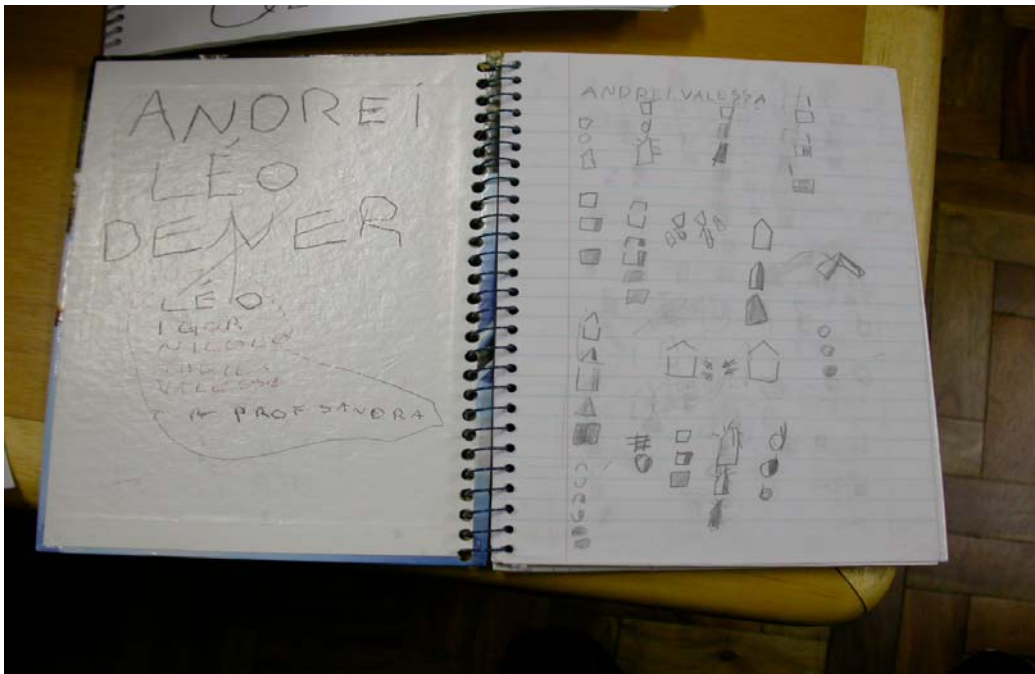 ANDREI
LÉO
DENER
LÉO
IGOR
NICOLO
VALESSE
A PROF SANDRA
ANDREI VALESSA